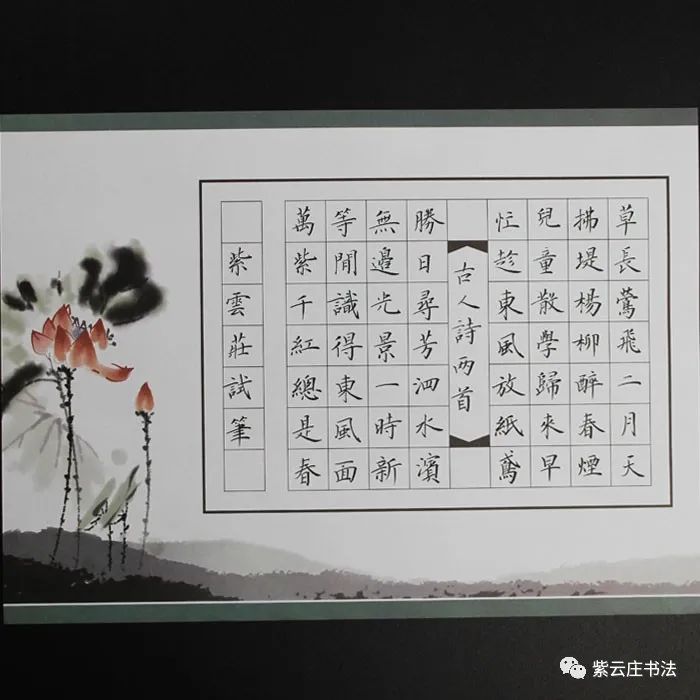 草長鶯飛二月天
拂堤楊柳醉春煙
兒童散學歸來早
忙趁東風放紙鳶
古人詩两首
勝日尋芳泗水濱
無邊光景一時新
等閒識得東風面
萬紫千紅總是春
紫雲莊試筆
紫云庄书法